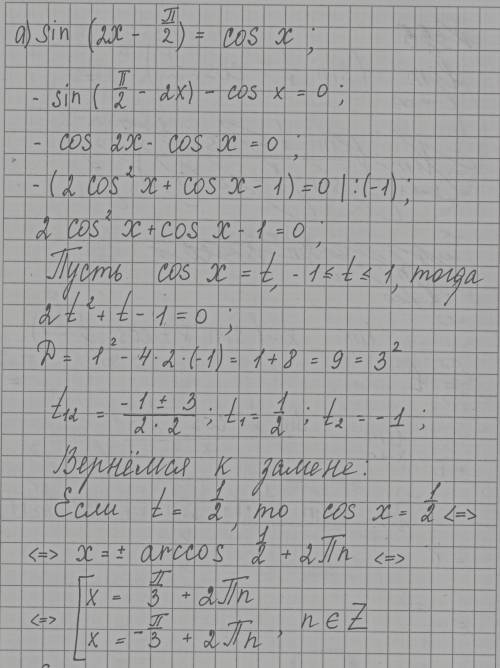 а) sin (2x - π/2) = cos x ;
- sin ( π/2 - 2x) - cos x = 0 ;
- cos 2x - cos x = 0 ;
- (2 cos² x + cos x - 1) = 0 |:(-1) ;
2 cos² x + cos x - 1 = 0 ;
Пусть cos x = t, -1 ≤ t ≤ 1, тогда
2t² + t - 1 = 0 ;
Д = 1² - 4·2·(-1) = 1 + 8 = 9 = 3²
t₁₂ = (-1 ± 3)/(2·2) ; t₁ = 1/2 ; t₂ = -1 ;
Вернёмся к замене:
Если t = 1/2, то cos x = 1/2 <=>
<=> x = ± arccos 1/2 + 2Пn <=>
<=> [ x = π/3 + 2Пn
x = -π/3 + 2Пn , n ∈ Z